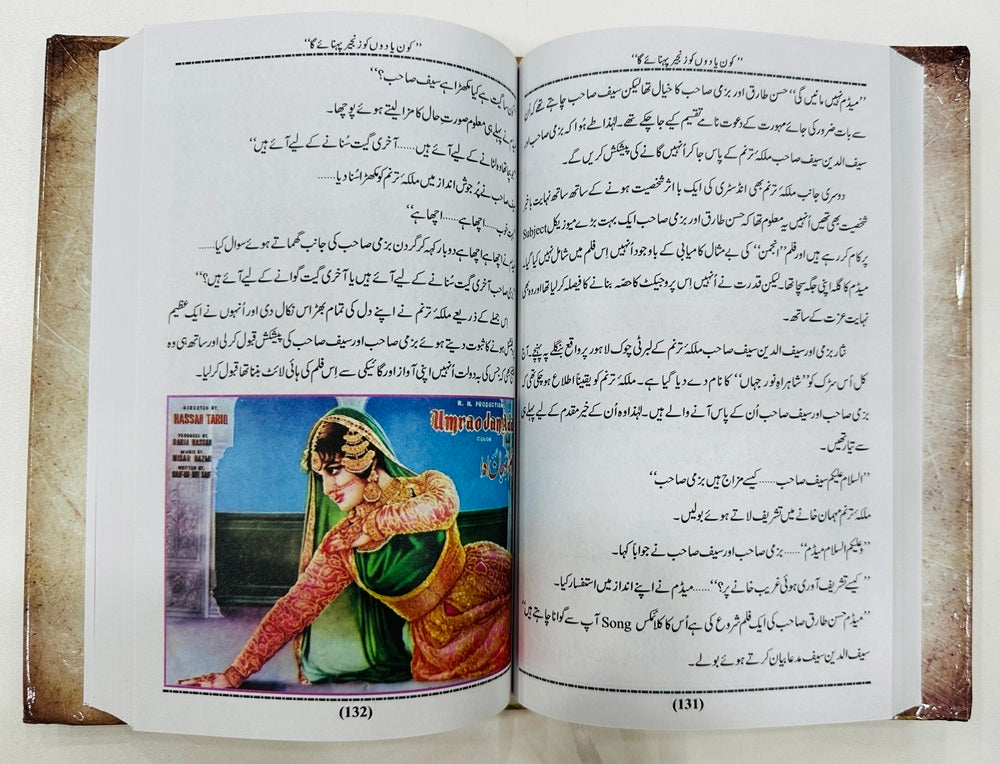 ”کون یادوں کو زنجیر پہنائے گا“
”میڈم نہیں مانیں گی“ حسن طارق اور بزمی صاحب کا خیال تھا لیکن سیف صاحب چاہتے تھے کہ اُن
سے بات ضرور کی جائے مہورت کے دعوت نامے تقسیم کیے جا چکے تھے۔ لہٰذا طے ہُوا کہ بزمی صاحب اور
سیف الدین سیف صاحب ملکۂ ترنم کے پاس جا کر اُنہیں گانے کی پیشکش کریں گے۔
دوسری جانب ملکۂ ترنم بھی انڈسٹری کی ایک با اثر شخصیت ہونے کے ساتھ ساتھ نہایت با خبر
شخصیت بھی تھیں اُنہیں یہ معلوم تھا کہ حسن طارق اور بزمی صاحب ایک بہت بڑے میوزیکل Subject
پر کام کر رہے ہیں اور فلم ”انجمن“ کی بے مثال کامیابی کے باوجود اُنہیں اِس فلم میں شامل نہیں کیا گیا۔
میڈم کا گلہ اپنی جگہ سچا تھا۔ لیکن قدرت نے اُنہیں اِس پروجیکٹ کا حصّہ بنانے کا فیصلہ کر لیا تھا اور وہ بھی
نہایت عزت کے ساتھ۔
نثار بزمی اور سیف الدین سیف صاحب ملکۂ ترنم کے لبرٹی چوک لاہور پر واقع بنگلے پہ پہنچے۔ آج
کل اُس سڑک کو ”شاہراہِ نور جہاں“ کا نام دے دیا گیا ہے۔ ملکۂ ترنم کو یقیناً اطلاع ہو چکی تھی کہ
بزمی صاحب اور سیف صاحب اُن کے پاس آنے والے ہیں۔ لہٰذا وہ اُن کے خیر مقدم کے لیے پہلے ہی
سے تیار تھیں۔
”السلام علیکم سیف صاحب...... کیسے مزاج ہیں بزمی صاحب“
ملکۂ ترنم مہمان خانے میں تشریف لاتے ہوئے بولیں۔
”وعلیکم السلام میڈم“...... بزمی صاحب اور سیف صاحب نے جواباً کہا۔
”کیسے تشریف آوری ہوئی غریب خانے پر؟“...... میڈم نے اپنے انداز میں استفسار کیا۔
”میڈم حسن طارق صاحب کی ایک فلم شروع کی ہے اُس کا کلائمکس Song آپ سے گوانا چاہتے ہیں“
سیف الدین سیف مدعا بیان کرتے ہوئے بولے۔
(131)
”کون یادوں کو زنجیر پہنائے گا“
سا گیت ہے کیا مکھڑا ہے سیف صاحب؟“
نے پہلے ہی معلوم صورتِ حال کا مزا لیتے ہوئے پوچھا۔
لٹانے کے لیے آئے ہیں...... آخری گیت سُنانے کے لیے آئے ہیں“
صاحب نے پُر جوش انداز میں ملکۂ ترنم کو مکھڑا سُنا دیا......
خوب...... اچھا ہے...... اچھا ہے“
نے اچھا ہے اچھا ہے دوبار کہہ کر گردن بزمی صاحب کی جانب گھماتے ہوئے سوال کیا......
صاحب آخری گیت سُنانے کے لیے آئے ہیں یا آخری گیت گوانے کے لیے آئے ہیں؟“
اِس جملے کے ذریعے ملکۂ ترنم نے اپنے دل کی تمام بھڑاس نکال دی اور اُنہوں نے ایک عظیم
ہونے کا ثبوت دیتے ہوئے بزمی صاحب اور سیف صاحب کی پیشکش قبول کر لی اور ساتھ ہی وہ
بھی کہ جس کی بدولت اُنہیں اپنی آواز اور گائیکی سے اِس فلم کی ہائی لائٹ بننا تھا قبول کر لیا۔
DIRECTED BY
HASSAN TARIQ
PRODUCED BY
RABIA HASSAN
MUSIC BY
NISAR BAZMI
WRITTEN BY
SAIF-UD DIN SAIF
R. H. PRODUCTION
Umrao Jan
COLOR
(132)